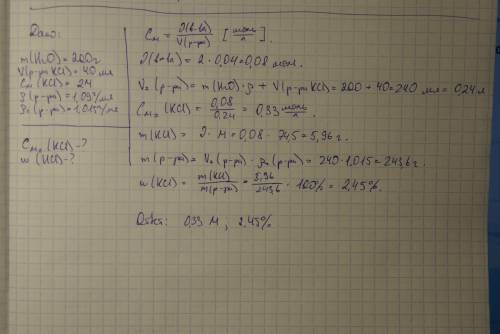 Дано:
m(H₂O) = 200г
V(р-ра KCl) = 40 мл
Cм (KCl) = 2М
ρ(р-ра) = 1,09г/мл
ρ₀(р-ра) = 1,015г/мл
Cм₀ (KCl) - ?
w (KCl) - ?
Cм = ν(в-ва) / V(р-ра) [моль/л].
ν(в-ва) = 2 · 0,04 = 0,08 моль.
V₀(р-ра) = m(H₂O) · ρ + V(р-ра KCl) = 200 + 40 = 240 мл = 0,24 л
Cм₀ (KCl) = 0,08 / 0,24 = 0,33 моль/л.
m(KCl) = ν · M = 0,08 · 74,5 = 5,96 г.
m(р-ра) = V₀(р-ра) · ρ₀(р-ра) = 240 · 1,015 = 243,6 г.
w(KCl) = m(KCl) / m(р-ра) = 5,96 / 243,6 · 100% = 2,45%.
Ответ: 0,33 М ; 2,45%